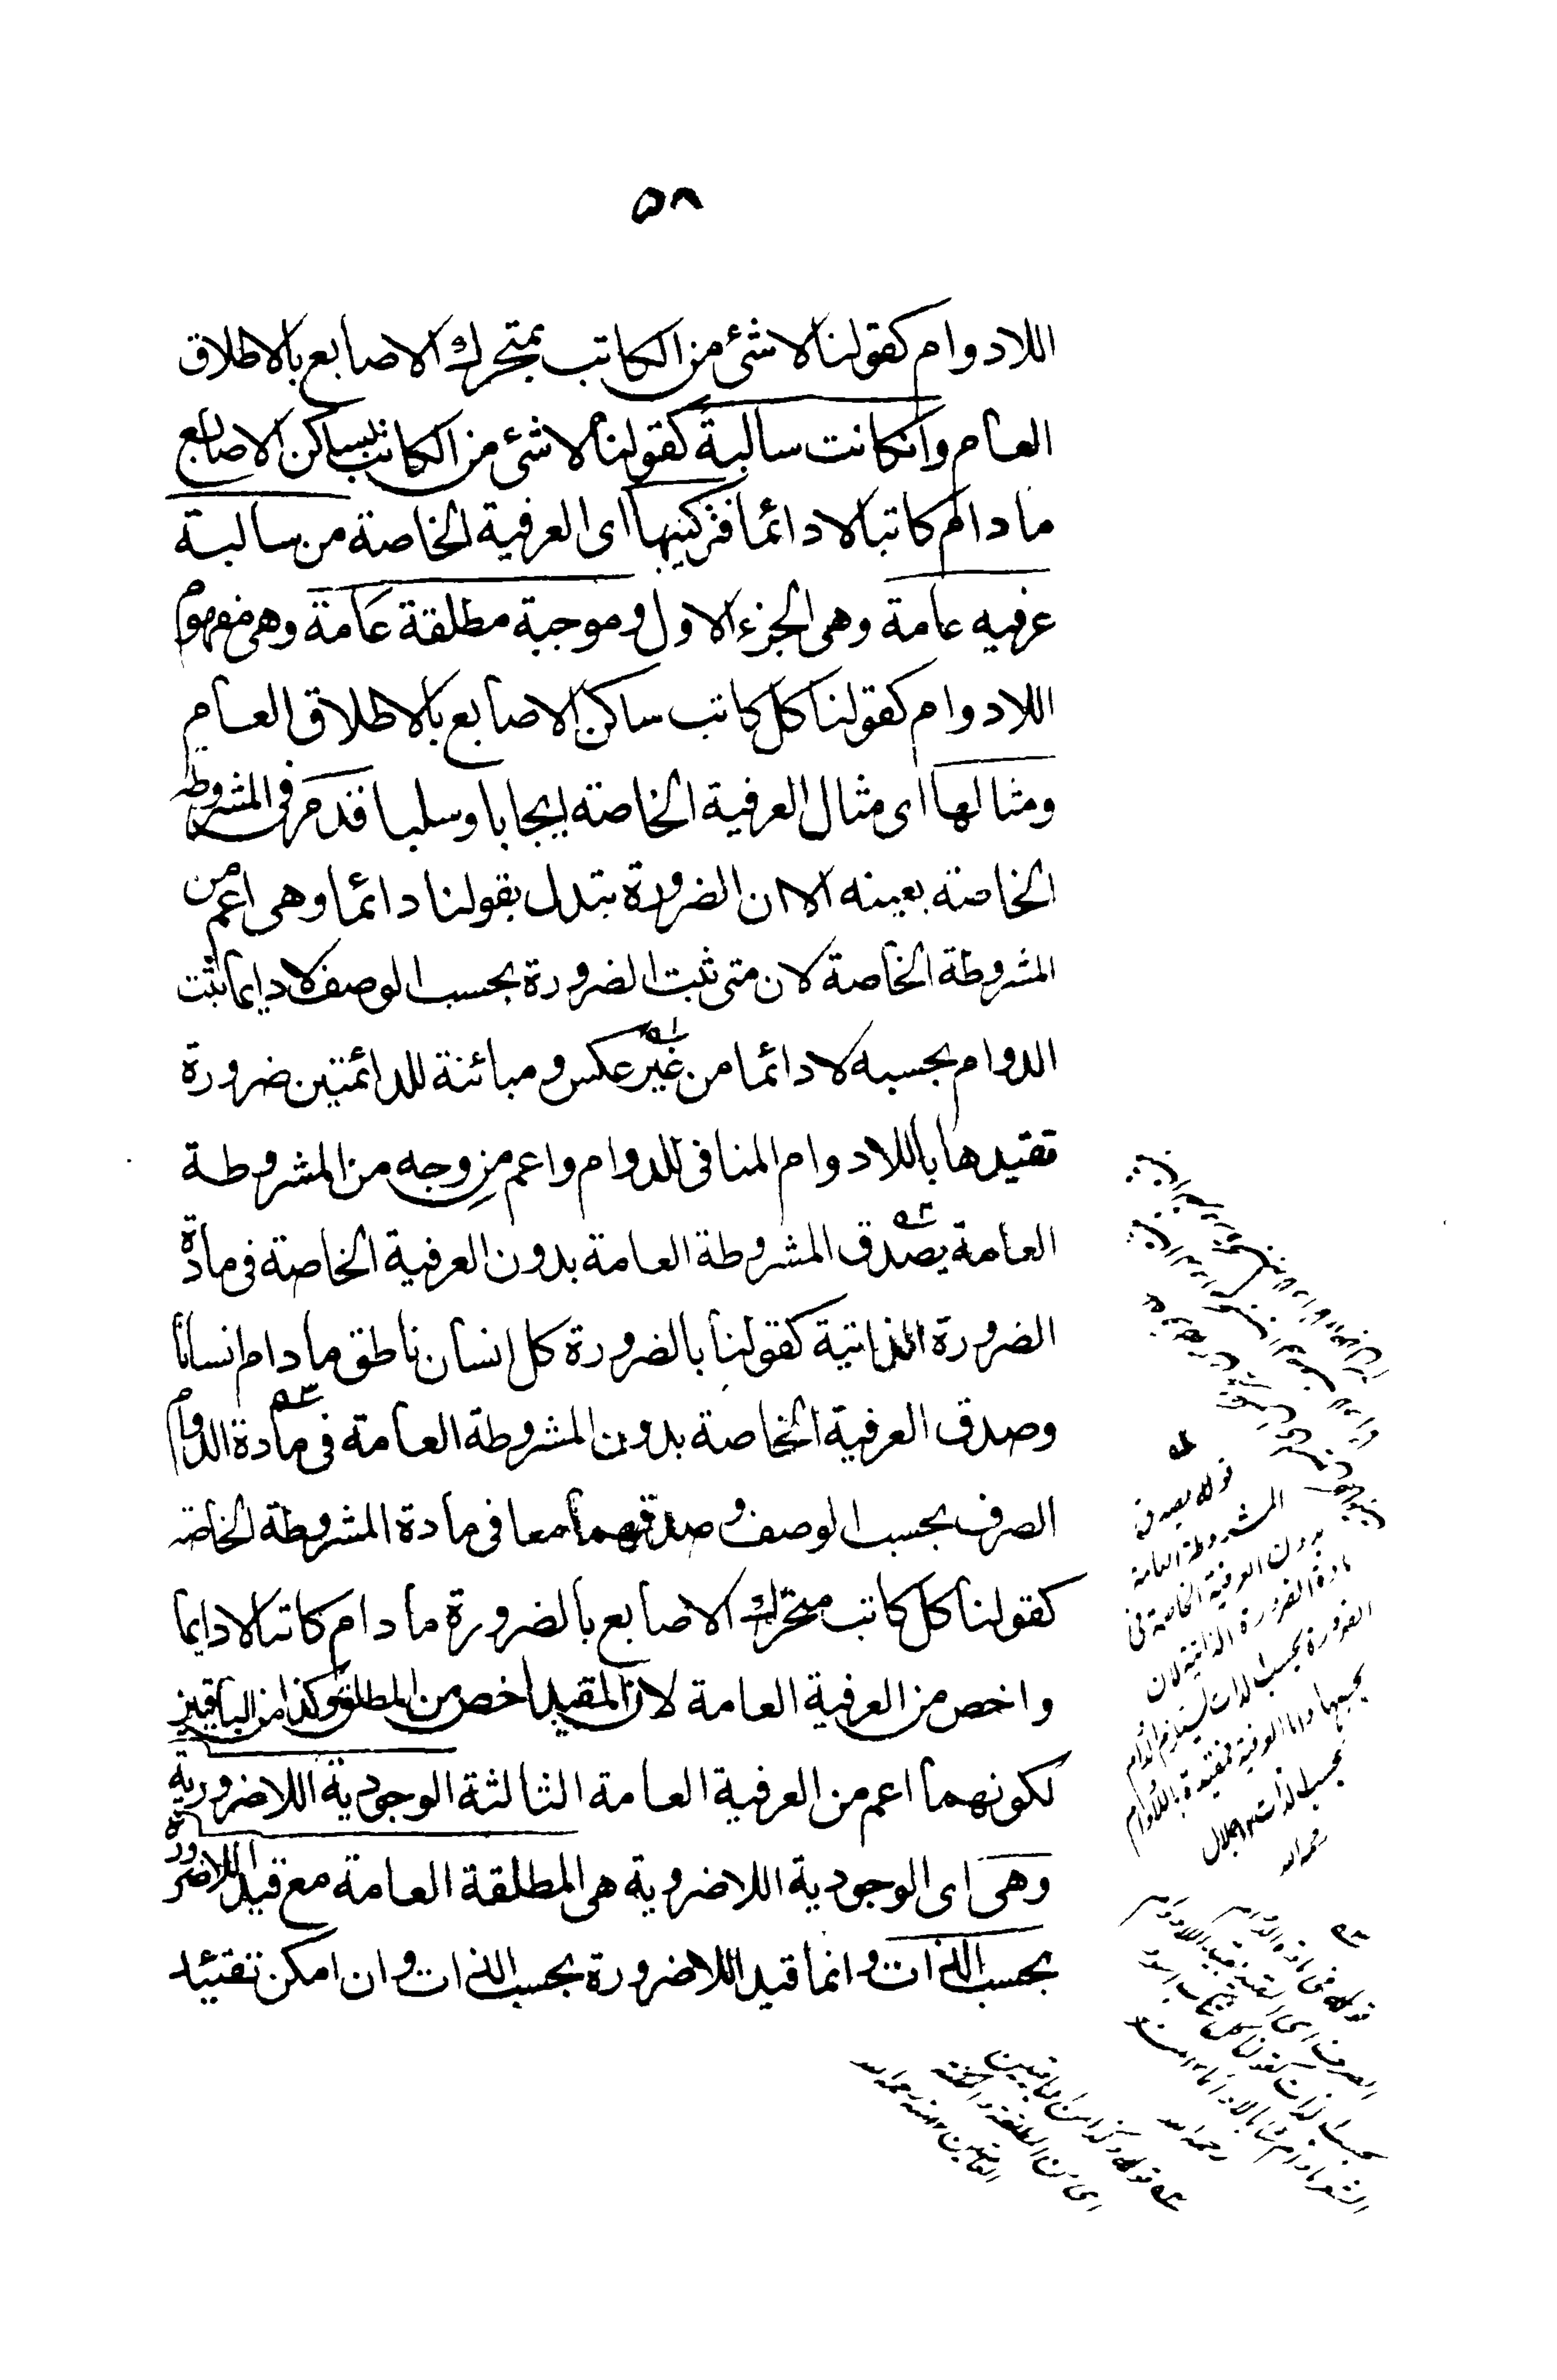 ٥٨
اللادوام كقولنا لا شئ من الكاتب بمتحرك الاصابع بالاطلاق
العام وانكانت سالبة كقولنا لا شئ من الكاتب بساكن الاصابع
مادام كاتبا لا دائما فتركيبها اى العرفية الخاصة من سالبة
عرفيه عامة وهى الجزء الاول وموجبة مطلقة عامة وهى مفهوم
اللادوام كقولنا كل كاتب ساكن الاصابع بالاطلاق العام
ومثالها اى مثال العرفية الخاصة ايجابا وسلبا فقد مر فى المشروطه
الخاصة بعينه الا ان الضرورة تبدل بقولنا دائما وهى اعم من
المشروطة الخاصة لان متى ثبت الضرورة بحسب الوصف لا دايما ثبت
الدوام بحسبه لا دائما من غير عكس ومبائنة للدائمتين ضرورة
تقييدها باللادوام المنافى للدوام واعم من وجه من المشروطة
العامة يصدق المشروطة العامة بدون العرفية الخاصة فى مادة
الضرورة الذاتية كقولنا بالضرورة كل انسان ناطق مادام انسانا
وصدق العرفية الخاصة بدون المشروطة العامة فى مادة الدوام
الصرف بحسب الوصف وصدقهما معا فى مادة المشروطة الخاصه
كقولنا كل كاتب متحرك الاصابع بالضرورة مادام كاتبا لا دايما
واخص من العرفية العامة لان المقيد اخص من المطلق وكذا من الباقيين
لكونهما اعم من العرفية العامة الثالثة الوجودية اللاضرورية
وهى اى الوجودية اللاضروية هى المطلقة العامة مع قيد اللاضرورة
بحسب الذات وانما قيد اللاضرورة بحسب الذات وان امكن تقييد
قوله يصدق
المشروطة العامة
بدون العرفية الخاصة فى
مادة الضرورة الذاتية لان
الضرورة بحسب الذات يستلزم الدوام
بحسبها واما العرفية فمقيدة باللادوام
بحسب الذات
رحمه الله
قوله فى مادة الدوام
الصرف اى
بحسب الذات كقولنا كل كاتب اسود
رحمه الله
قوله وكذا من الباقيين
اى من المطلقة
رحمه الله